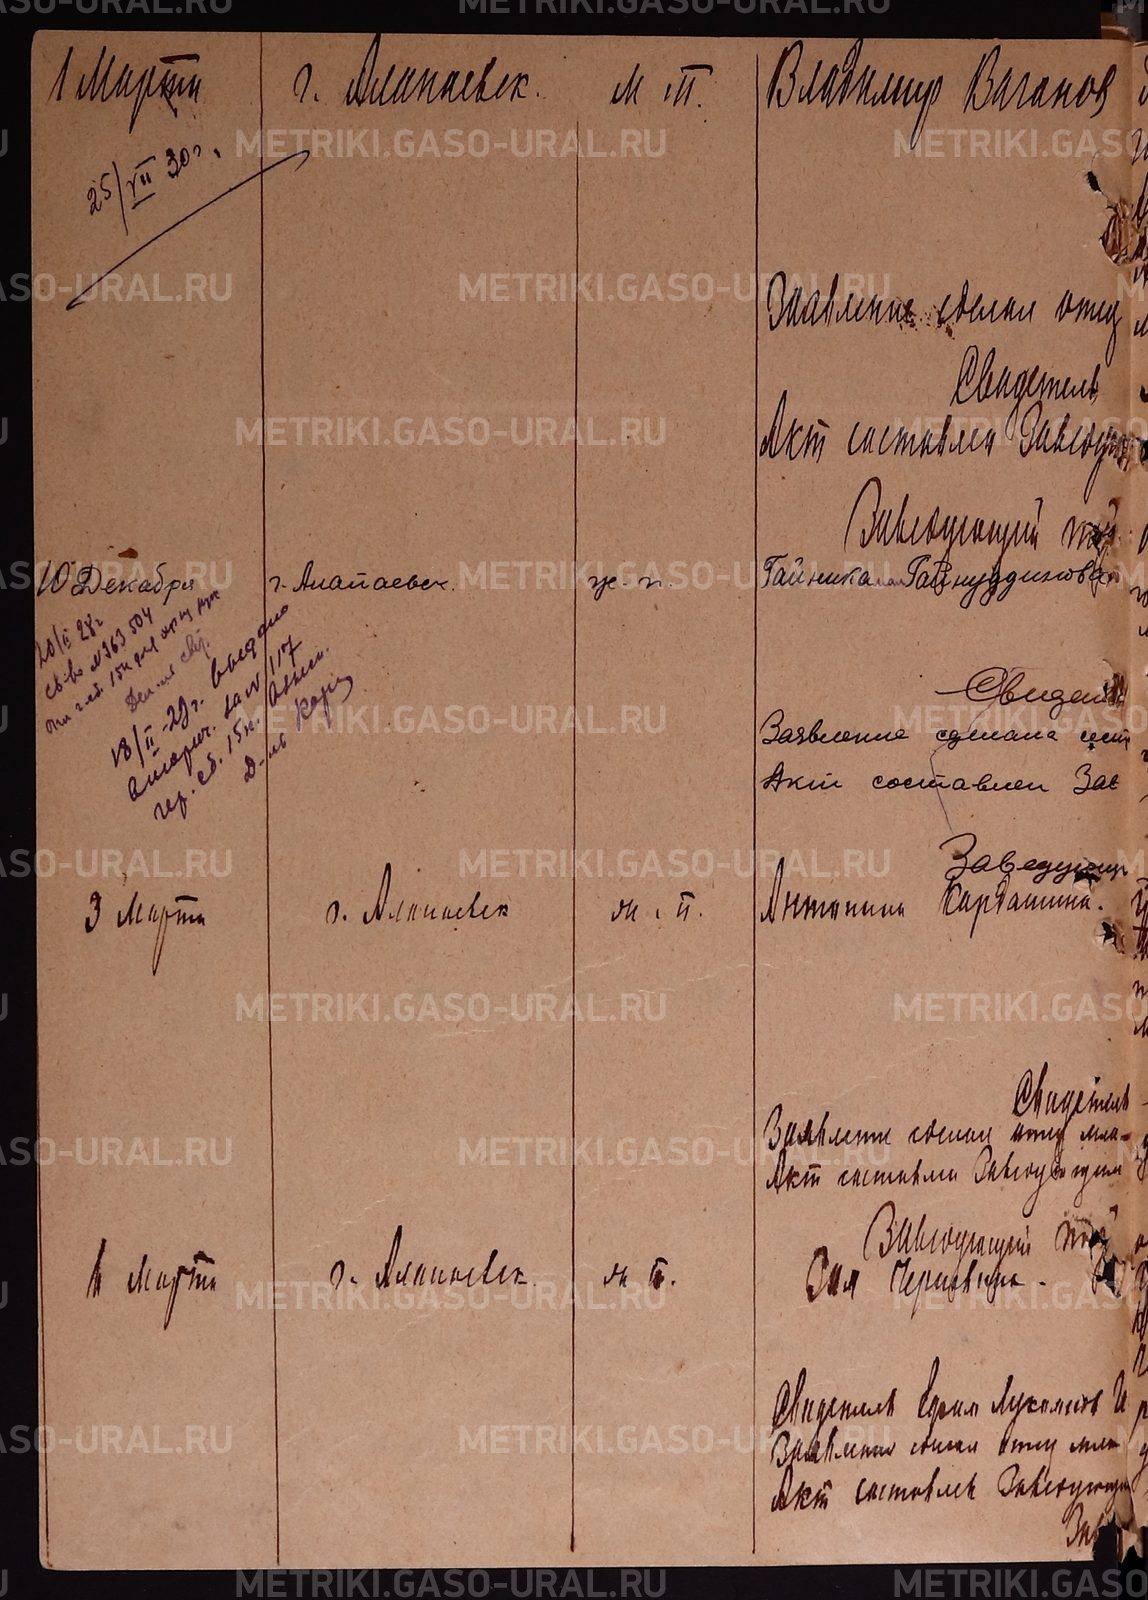 1 Марта г. Алапаевск. м. п. Владимир Ваганов
25/VII 30 г.
Заявление сделал отец
Свидетель
Акт составлен Заведую
Заведующий
10 Декабря г. Алапаевск. ж. п. Гайника Гайнуддинова
20/II 28 г
св-во № 363504
18/II-29 г. выдано
гер. сб. 15 к.
Свидет
Заявление сделала
Акт составлен Зав
Заведующ
3 Марта г. Алапаевск ж. п. Антонина Кардашина.
Свидетель
Заявление сделал отец мла-
Акт составлен Заведующим
Заведующий
1 Марта г. Алапаевск. ж п. Зая
Свидетель
Заявление сделал отец мла
Акт составлен Заведующи
Зав
METRIKI.GASO-URAL.RU